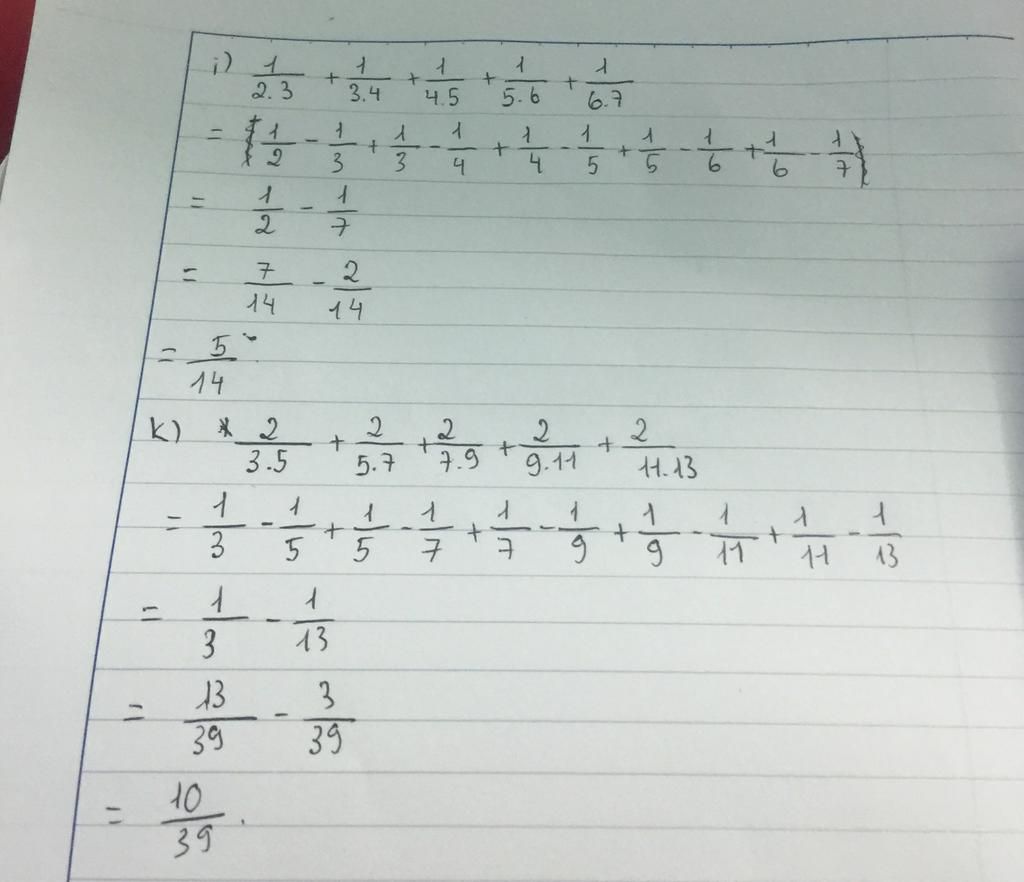 i) 1/2.3 + 1/3.4 + 1/4.5 + 1/5.6 + 1/6.7
= 1/2 - 1/3 + 1/3 - 1/4 + 1/4 - 1/5 + 1/5 - 1/6 + 1/6 - 1/7
= 1/2 - 1/7
= 7/14 - 2/14
= 5/14
k) 2/3.5 + 2/5.7 + 2/7.9 + 2/9.11 + 2/11.13
= 1/3 - 1/5 + 1/5 - 1/7 + 1/7 - 1/9 + 1/9 - 1/11 + 1/11 - 1/13
= 1/3 - 1/13
= 13/39 - 3/39
= 10/39.